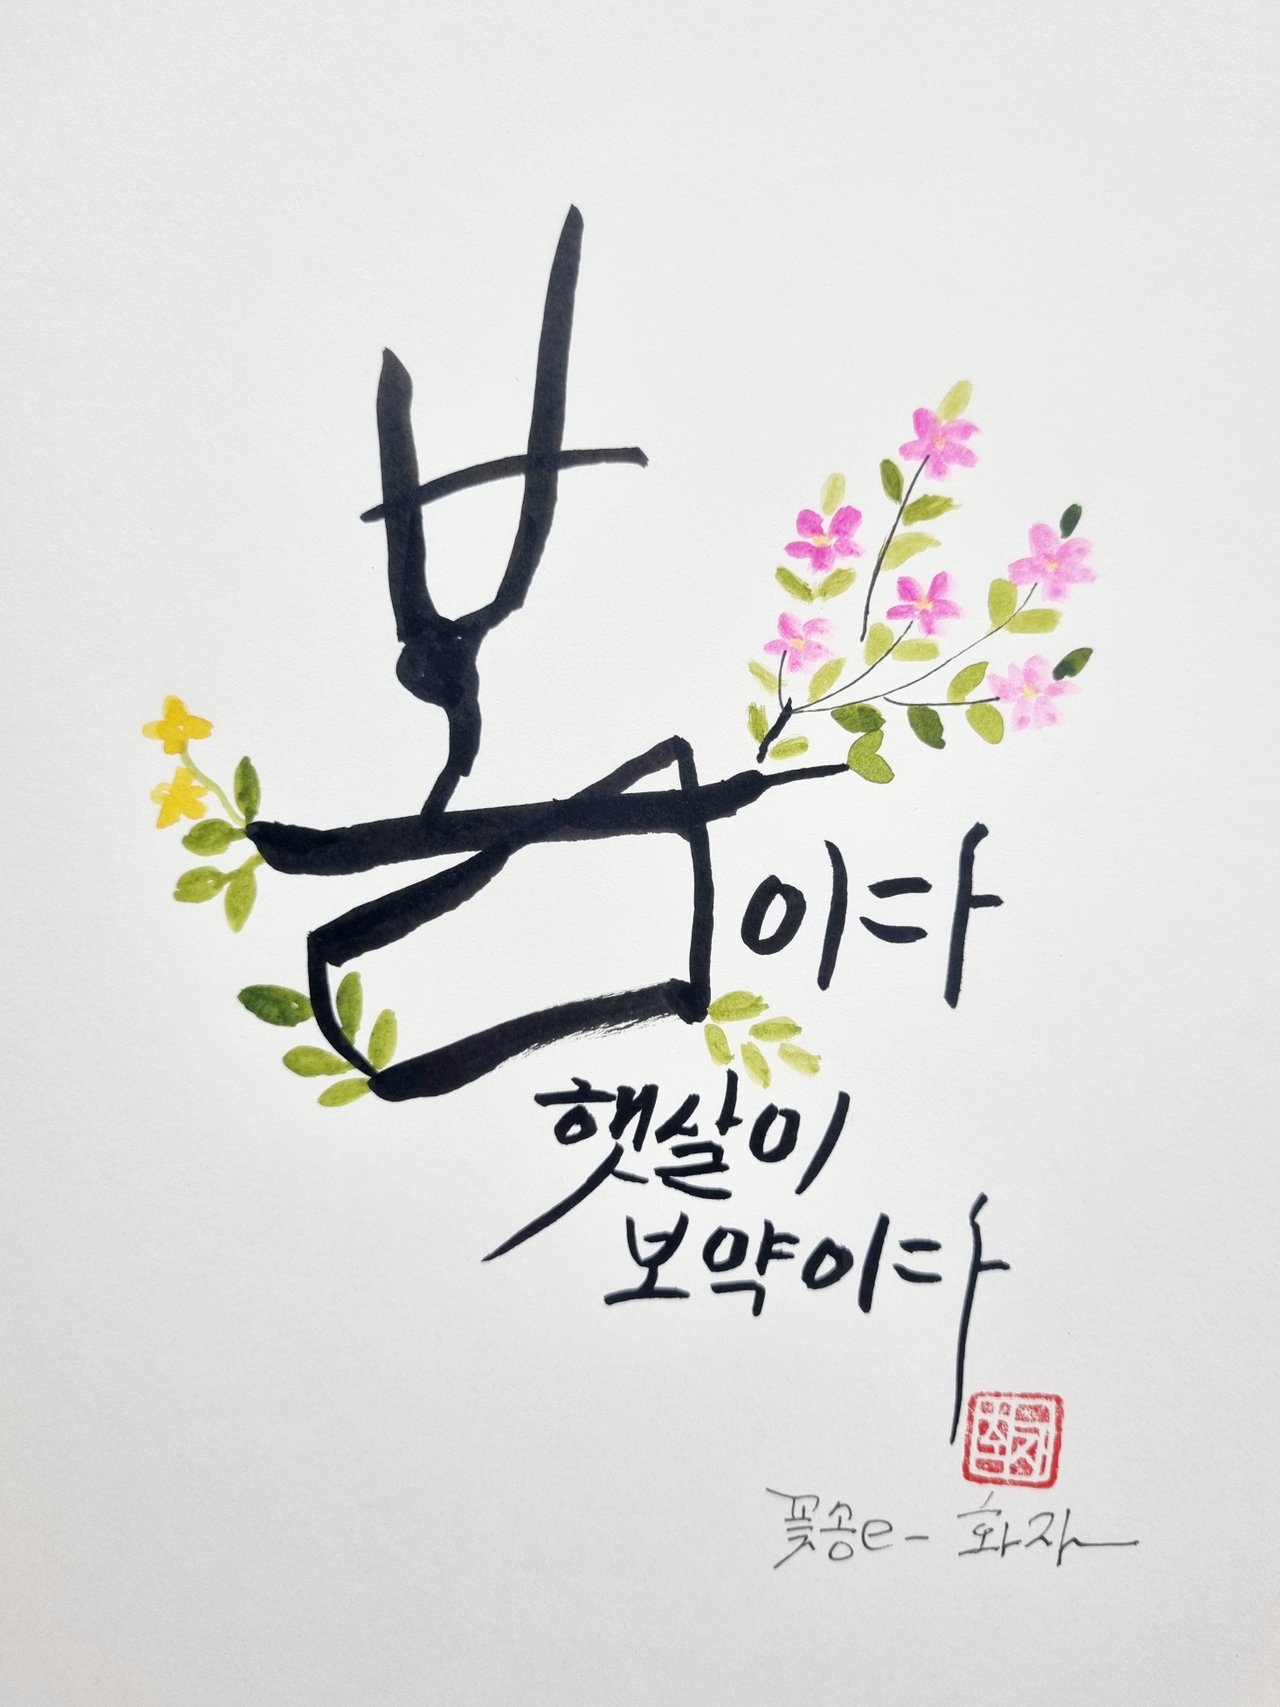 봄이다
햇살이
보약이다
꽃송e- 화자